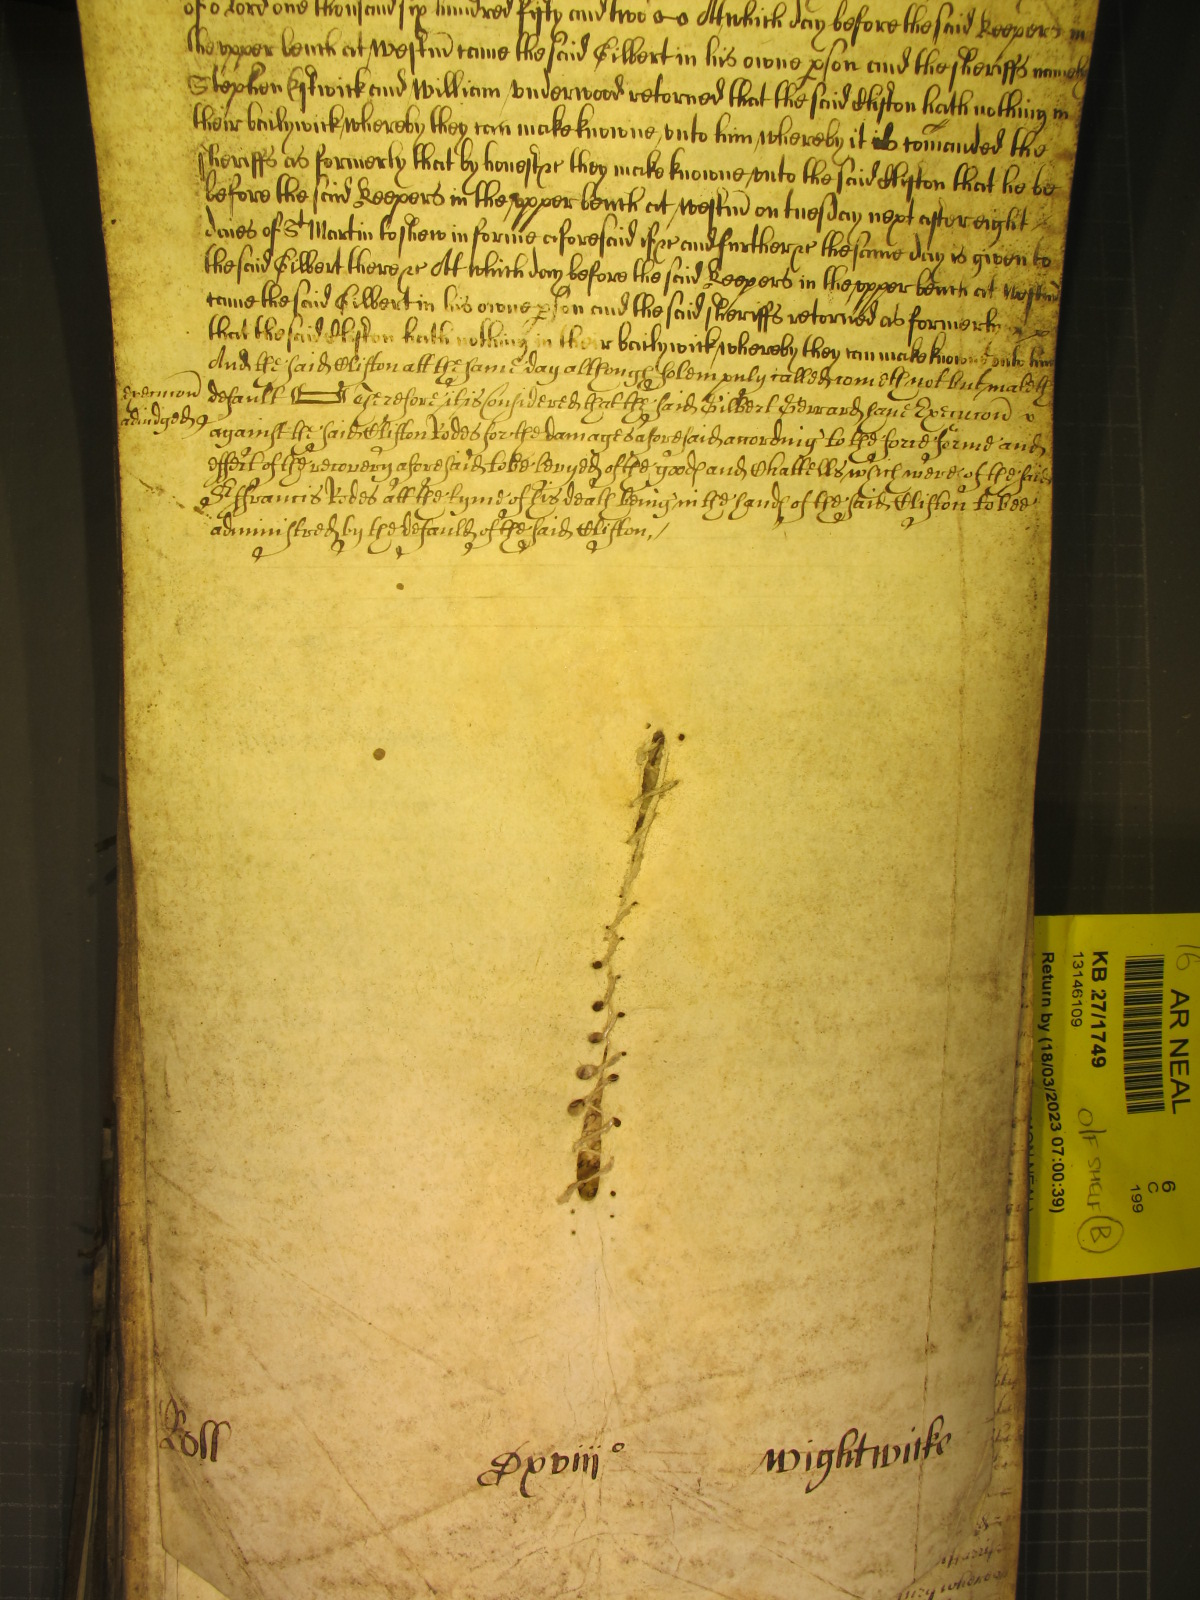 of o Lord one thousand six hundred fifty and two At which day before the said Keepers in
the vpper bench at Westm̄ came the said Gilbert in his owne pson and the sheriffs namely
Stephen Estwick and William Vnderwood retorned that the said Clifton hath nothing in
their bailywick whereby they can make knowne vnto him whereby it is comanded the
sheriffs as formerly that by honest &c they make knowne vnto the said Clifton that he be
before the said Keepers in the vpper bench at Westm̄ on tuesday next after eight
daies of St Martin to shew in forme aforesaid if &c and further &c the same day is given to
the said Gilbert there &c At which day before the said Keepers in the vpper bench at Westm̄
came the said Gilbert in his owne pson and the said sheriffs retorned as formerly
that the said Clifton hath nothing in their bailywick whereby they can make knowne vnto him
And the said Clifton att the same day although solempnly called cometh not but maketh
default Therefore it is considered that the said Gilbert Gerrard have Execucon̄
Execucon̄
adiudged
against the said Clifton Rodes for the damages aforesaid according to the force forme and
effect of the recovery aforesaid to be levyed of the goods and Chattells which were of the said
Sr Francis Rodes att the tyme of his death being in the hands of the said Clifton to bee
administred by the default of the said Clifton,/
Roll
Dxviii o
Wightwicke
16
AR NEAL
KB 27/1749
13146109
Return by (18/03/2023 07:00:39)
O/F SHELF B
6
C
199